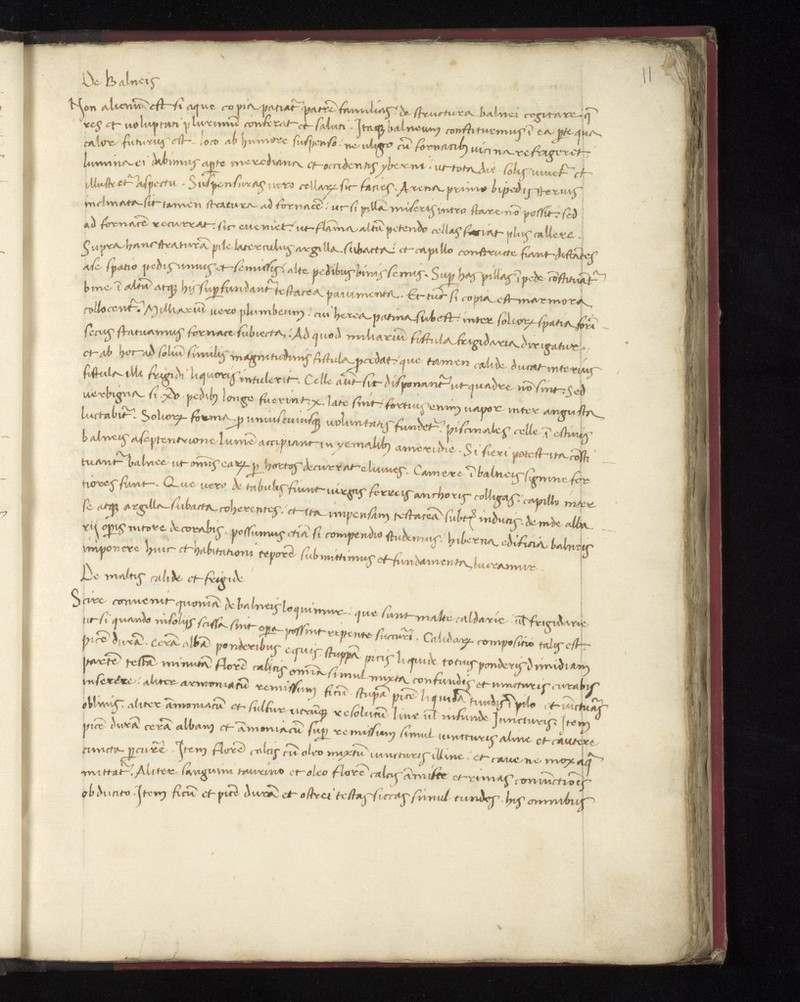 11
De Balneis
Non alienũ est si aque copia patiat᷑ patrẽ familias de structura balnei cogitare· q̃
res et voluptati plurimũ conferat et saluti· Itaq; balneum constituemus ĩ ea p̱te qua
calor futurus est· loco ab humore suspenso· ne uligo cũ fornacib; uicina refrigeret
lumina ei dabimus ap̱to meridiana et occidentis yberni· ut tota die solis iuuet᷑ et
illustret᷑ aspectu· Susp̱ensuras uero cellarꝝ sic facies· Arena primo bipedis sternis
inclinata sit tamen stratura ad fornacẽ· ut si pillã miseris intro stare nõ possit· sed
ad fornacẽ recurrat· sic eueniet· ut flãma altũ petendo cellas faciat plus callere·
Supra hanc straturã pile laterculus argilla subacta· et capillo constructe fiant· distãtes
ase spatio pedis unius et semissis· alte pedibus binis semis· Sup̱ has pillas ĩ pede cõstituãt᷑
bine ĩ altũ atq; his sup̱fundant᷑ testacea pauimenta· Et tũc si copia est marmora
collocent᷑· Miliariũ uero plumbeum· cui herea patina subest inter soliorꝝ spatia forĩ
secus statuamus fornace subiecta· Ad quod miliariũ fistula frigidaria dirigatur·
et ab hoc ad soliũ similis magnitudinis fistula p̱cedat· que tamen calide ducat interius
fistula illi frigidi liquoris intulerit· Celle aũt sic disponant᷑ ut quadre nõ sint· Sed
uerbigr̃a si xv pedib; longe fuerint· x· late sint· fortius enim uapor inter angusta
luctabit᷑· Soliorꝝ forma p̱ uniuscuiusq; uoluntatis fundet᷑· piscinales celle ĩ estiuis
balneis aseptentrione lumẽ accipiant in yemalib; ameridie· Si fieri potest ita cõsti
tuant᷑ balnee ut omis earꝝ p̱ hortos decurrat eluuies· Camere ĩ balneis signine for
tiores sunt· Que uero de tabulis fiunt uirgis ferreis anchoris colligas· capillo mar
se atq; argilla subacta coherentes· et ita impensam testaceã subt᷑ inducis· deinde alba
rij op̱is nitore decorabis· possumus etiã si compendio studemus· hiberna edificia balneis
imponere huic et habitationi teporẽ submittimus et fundamenta lucramur·
De maltis calide et frigide
Scire conuenit quoniã de balneis loquimur· que sunt malte caldarie· ul̃ frigidarie
ut si quando in solijs scissa sint opera possint repente succurri· Calidarꝝ compositio talis est
picẽ durã· cerã albã ponderibus equis stuppã picis liquide totius ponderis dimidiam
partẽ testã minutã florẽ calcis omĩa simul mixta confundis et iuncturis curabis
inserere· aliter armoniacũ remissum ficũ· stupã picẽ liquidã tundis pilo· et iũcturas
oblinis· aliter amoniacũ et sulfur utrũq; resolutũ line ul̃ infunde Iuncturis· Item
picẽ durã cerã albam et ãmoniacũ sup̱ remissum simul iuncturis aline et cautere
cuncta p̱curre· Item florẽ calcis cũ oleo mixtũ iuncturis illine· et caue ne mox aq̃
mittat᷑· Aliter sanguini taurino et oleo florẽ calcis ãmisce et rimas coniũctiõis
obducito· Item ficũ et picẽ durã et ostrei testas siccas simul tundes· his omnibus